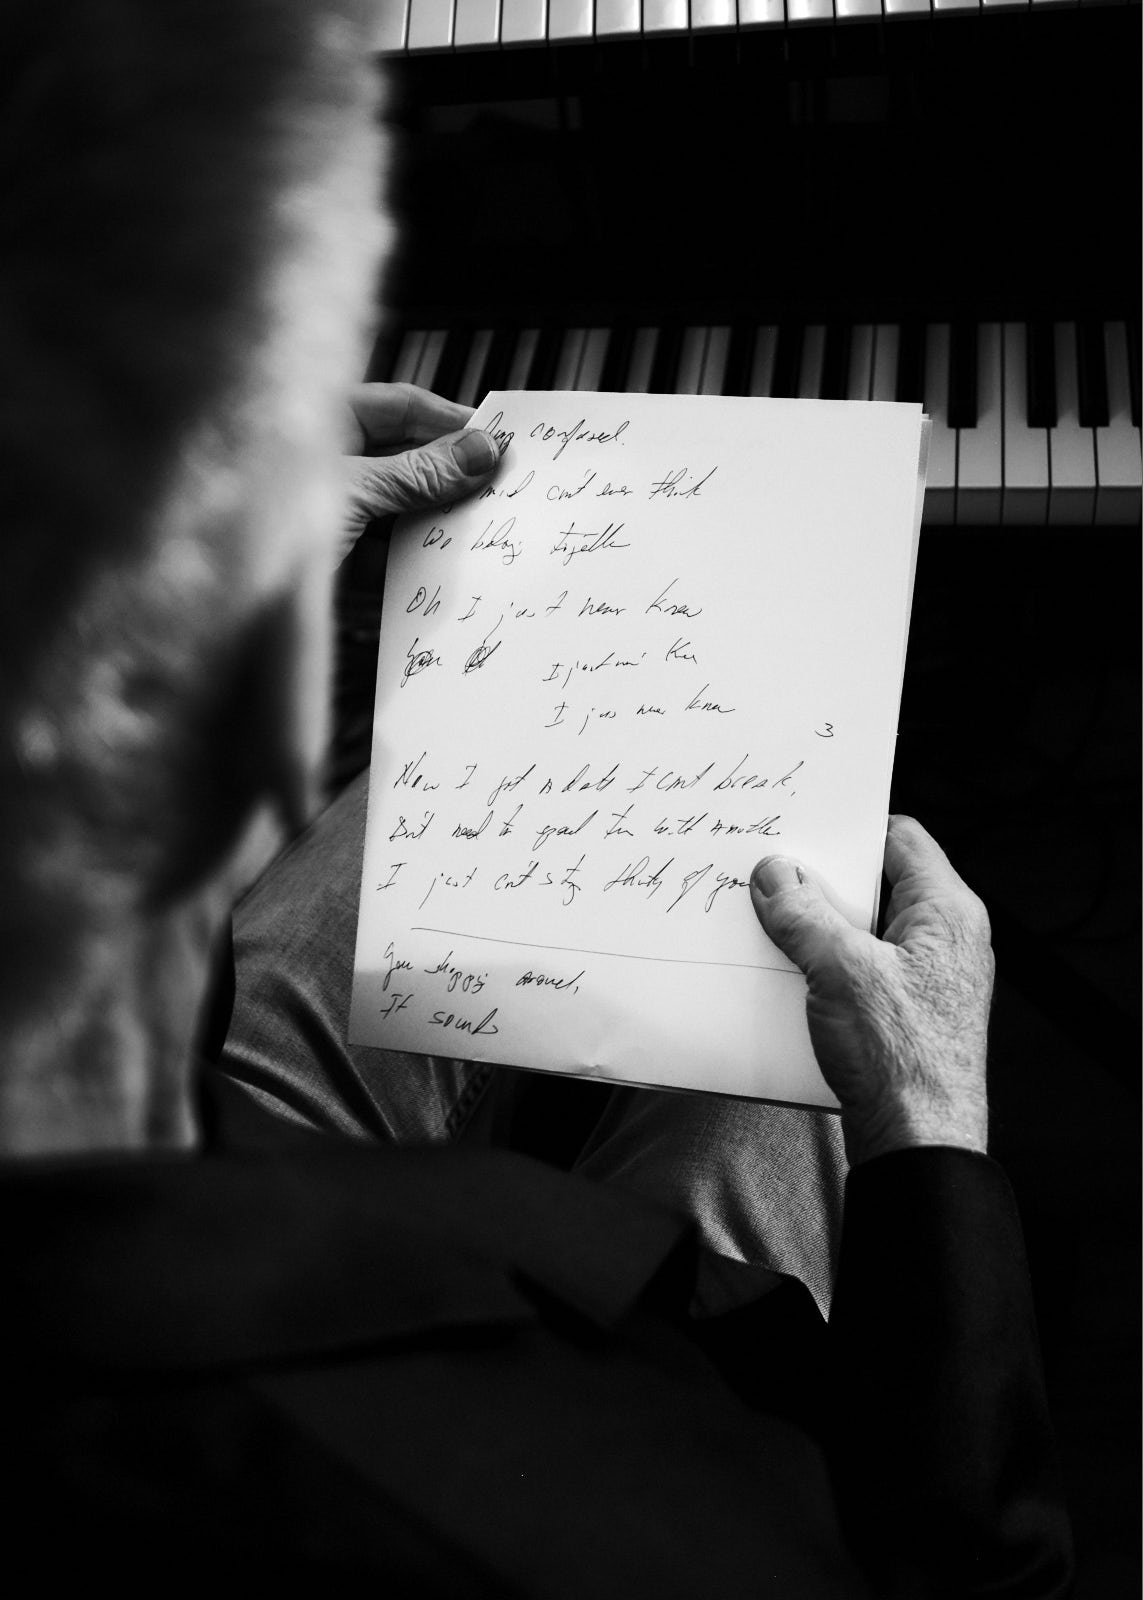 confused.
can't ever think
We belong together
Oh I just never knew
You
I just never knew
I just never knew
3
Now I got a date I can't break,
Don't need to spend time with another
I just can't stop thinking of you
You shopping around,
It sounds